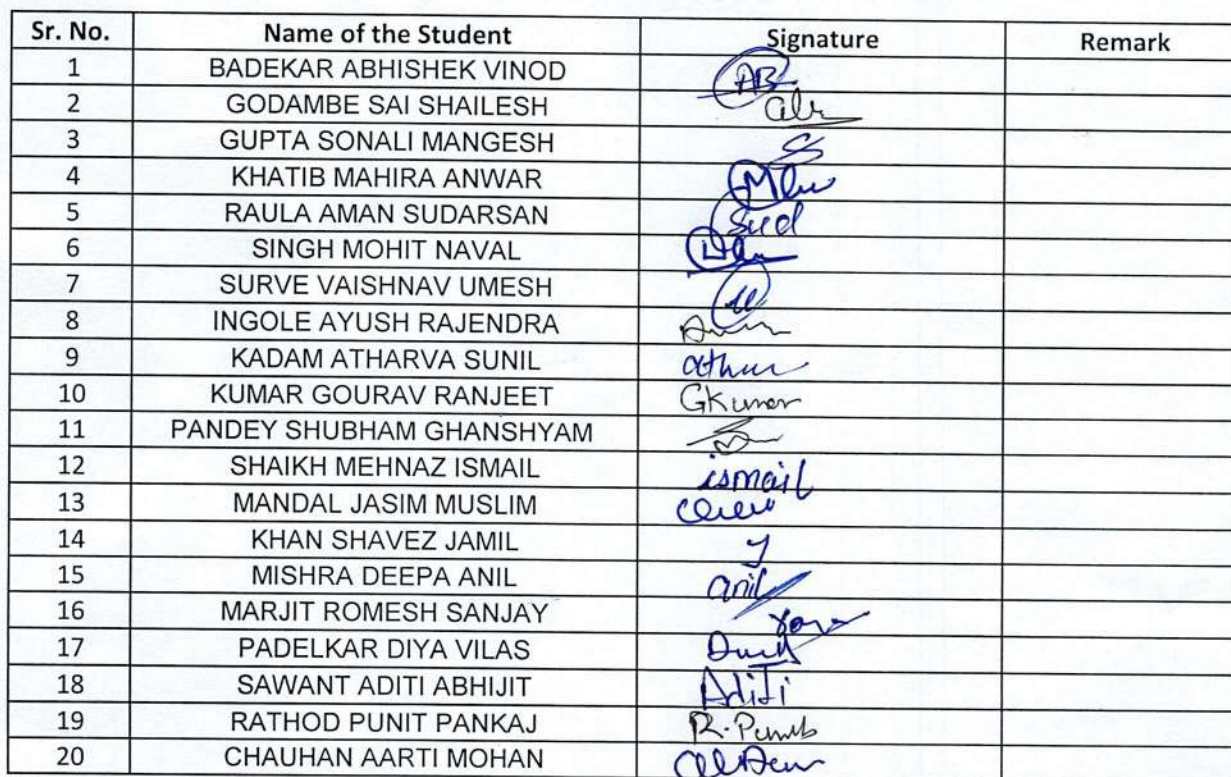 Sr. No. Name of the Student Signature Remark
1 BADEKAR ABHISHEK VINOD AB
2 GODAMBE SAI SHAILESH
3 GUPTA SONALI MANGESH
4 KHATIB MAHIRA ANWAR
5 RAULA AMAN SUDARSAN Sud
6 SINGH MOHIT NAVAL
7 SURVE VAISHNAV UMESH
8 INGOLE AYUSH RAJENDRA
9 KADAM ATHARVA SUNIL
10 KUMAR GOURAV RANJEET GKumar
11 PANDEY SHUBHAM GHANSHYAM
12 SHAIKH MEHNAZ ISMAIL ismail
13 MANDAL JASIM MUSLIM
14 KHAN SHAVEZ JAMIL
15 MISHRA DEEPA ANIL anil
16 MARJIT ROMESH SANJAY
17 PADELKAR DIYA VILAS
18 SAWANT ADITI ABHIJIT Aditi
19 RATHOD PUNIT PANKAJ
20 CHAUHAN AARTI MOHAN